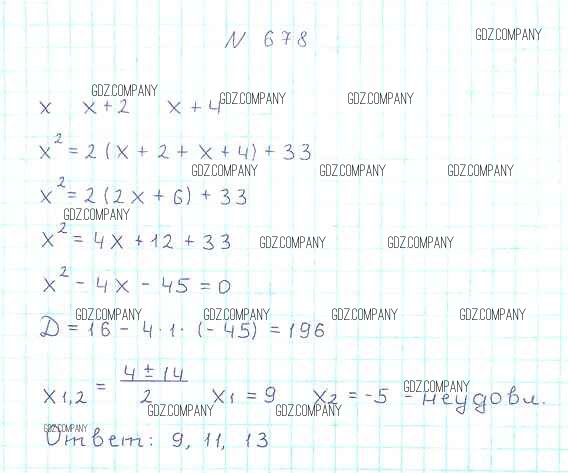 N 678 GDZ.COMPANY
GDZ.COMPANY GDZ.COMPANY GDZ.COMPANY
x x+2 x+4
x² = 2(x+2+x+4)+33
GDZ.COMPANY GDZ.COMPANY GDZ.COMPANY
x² = 2(2x+6)+33
GDZ.COMPANY
x² = 4x+12+33 GDZ.COMPANY GDZ.COMPANY
x² - 4x - 45 = 0
GDZ.COMPANY GDZ.COMPANY GDZ.COMPANY GDZ.COMPANY
D = 16 - 4·1·(-45) = 196
x1,2 = (4±14)/2 x1 = 9 x2 = -5 - неудовл.
GDZ.COMPANY
GDZ.COMPANY GDZ.COMPANY
GDZ.COMPANY
Ответ: 9, 11, 13